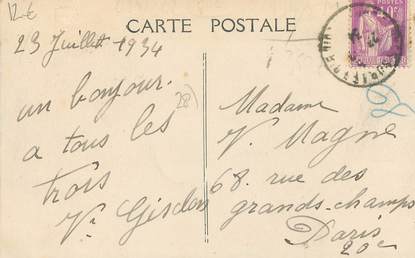 12€
CARTE POSTALE
23 Juillet 1934
un bonjour.
a tous les
trois
(28)
Madame
V. Magne
68. rue des
grands-champs
Paris
20e
POSTES